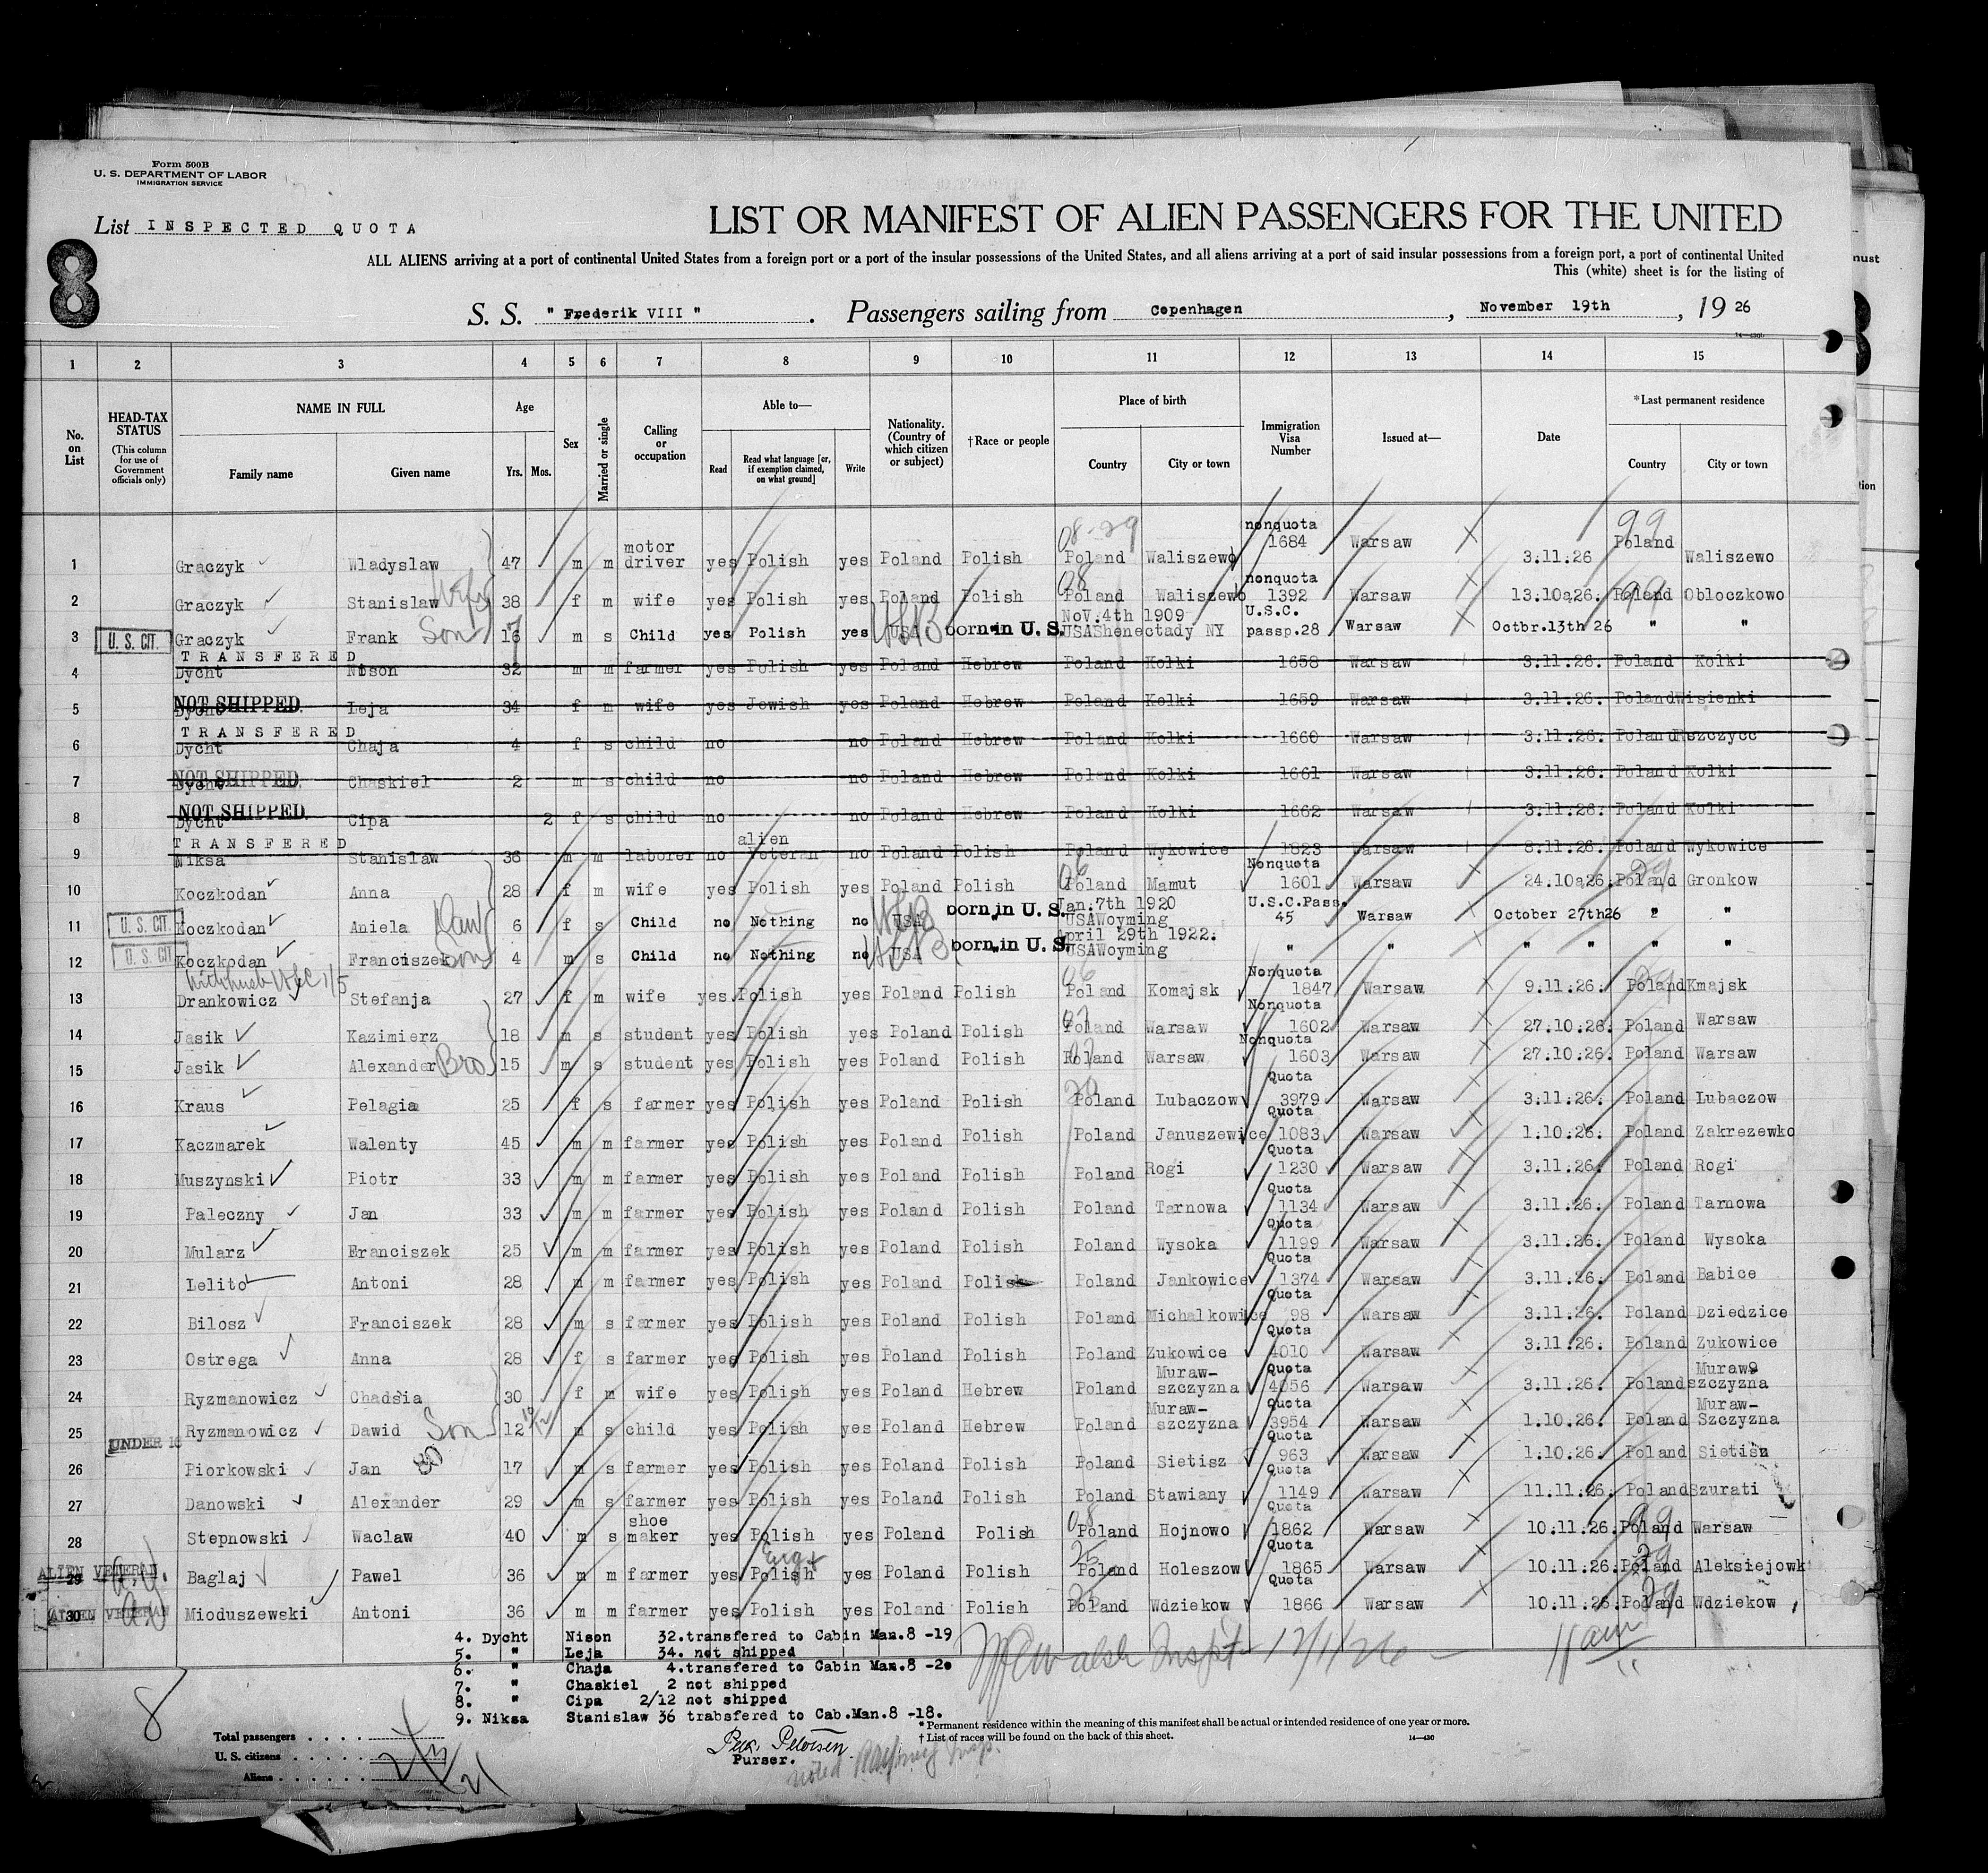 Form 500B
U. S. DEPARTMENT OF LABOR
IMMIGRATION SERVICE
List INSPECTED QUOTA
8
LIST OR MANIFEST OF ALIEN PASSENGERS FOR THE UNITED
ALL ALIENS arriving at a port of continental United States from a foreign port or a port of the insular possessions of the United States, and all aliens arriving at a port of said insular possessions from a foreign port, a port of continental United
This (white) sheet is for the listing of
S. S. "Frederik VIII". Passengers sailing from Copenhagen, November 19th, 19 26
1 2 3 4 5 6 7 8 9 10 11 12 13 14 15
No. on List
HEAD-TAX STATUS (This column for use of Government officials only)
NAME IN FULL Family name Given name
Age Yrs. Mos.
Sex
Married or single
Calling or occupation
Able to— Read Read what language [or, if exemption claimed, on what ground] Write
Nationality. (Country of which citizen or subject)
†Race or people
Place of birth Country City or town
Immigration Visa Number
Issued at—
Date
*Last permanent residence Country City or town
1 Graczyk Wladyslaw 47 m m motor driver yes Polish yes Poland Polish 08-29 Poland Waliszewo nonquota 1684 Warsaw 3.11.26 99 Poland Waliszewo
2 Graczyk Stanislaw wife 38 f m wife yes Polish yes Poland Polish 08 Poland Waliszewo nonquota 1392 Warsaw 13.10a26. 99 Poland Obloczkowo
3 U. S. CIT. Graczyk Frank Son 16 m s Child yes Polish yes USA born in U. S. Nov.4th 1909 USAShenectady NY U.S.C. passp.28 Warsaw Octbr.13th 26 " "
4 TRANSFERED Dycht Nison 32 m m farmer yes Polish yes Poland Hebrew Poland Kolki 1658 Warsaw 3.11.26. Poland Kolki
5 NOT SHIPPED Dycht Leja 34 f m wife yes Jewish yes Poland Hebrew Poland Kolki 1659 Warsaw 3.11.26. Poland Wisienki
6 TRANSFERED Dycht Chaja 4 f s child no no Poland Hebrew Poland Kolki 1660 Warsaw 3.11.26. Poland
7 NOT SHIPPED Dycht Chaskiel 2 m s child no no Poland Hebrew Poland Kolki 1661 Warsaw 3.11.26. Poland Kolki
8 NOT SHIPPED Dycht Cipa 2 f s child no no Poland Hebrew Poland Kolki 1662 Warsaw 3.11.26. Poland Kolki
9 TRANSFERED Niksa Stanislaw 36 m m laborer no alien Veteran no Poland Polish Poland Wykowice 1823 Warsaw 8.11.26. Poland Wykowice
10 Koczkodan Anna 28 f m wife yes Polish yes Poland Polish 06 Poland Mamut Nonquota 1601 Warsaw 24.10a26. Poland Gronkow
11 U. S. CIT. Koczkodan Aniela 6 f s Child no Nothing no USA born in U. S. Jan.7th 1920 USAWoyming U.S.C.Pass. 45 Warsaw October 27th26 " "
12 U. S. CIT Koczkodan Franciszek Son 4 m s Child no Nothing no USA born in U. S. April 29th 1922. USAWoyming " " " " " "
13 Drankowicz Stefanja 27 f m wife yes Polish yes Poland Polish 06 Poland Komajsk Nonquota 1847 Warsaw 9.11.26. Poland Kmajsk
14 Jasik Kazimierz 18 m s student yes Polish yes Poland Polish Poland Warsaw Nonquota 1602 Warsaw 27.10.26. Poland Warsaw
15 Jasik Alexander Bro 15 m s student yes Polish yes Poland Polish Poland Warsaw Nonquota 1603 Warsaw 27.10.26. Poland Warsaw
16 Kraus Pelagia 25 f s farmer yes Polish yes Poland Polish Poland Lubaczow Quota 3979 Warsaw 3.11.26. Poland Lubaczow
17 Kaczmarek Walenty 45 m m farmer yes Polish yes Poland Polish Poland Januszewice Quota 1083 Warsaw 1.10.26. Poland Zakrezewko
18 Muszynski Piotr 33 m m farmer yes Polish yes Poland Polish Poland Rogi Quota 1230 Warsaw 3.11.26. Poland Rogi
19 Paleczny Jan 33 m m farmer yes Polish yes Poland Polish Poland Tarnowa Quota 1134 Warsaw 3.11.26. Poland Tarnowa
20 Mularz Franciszek 25 m m farmer yes Polish yes Poland Polish Poland Wysoka Quota 1199 Warsaw 3.11.26. Poland Wysoka
21 Lelito Antoni 28 m m farmer yes Polish yes Poland Polish Poland Jankowice Quota 1374 Warsaw 3.11.26. Poland Babice
22 Bilosz Franciszek 28 m s farmer yes Polish yes Poland Polish Poland Michalkowice Quota 98 Warsaw 3.11.26. Poland Dziedzice
23 Ostrega Anna 28 f s farmer yes Polish yes Poland Polish Poland Zukowice Quota 4010 Warsaw 3.11.26. Poland Zukowice
24 Ryzmanowicz Chadsia 30 f m wife yes Polish yes Poland Hebrew Poland Muraw- szczyzna Quota 4056 Warsaw 3.11.26. Poland Muraw szczyzna
25 UNDER 16 Ryzmanowicz Dawid Son 12 m s child yes Polish yes Poland Hebrew Poland Muraw- szczyzna Quota 3954 Warsaw 1.10.26. Poland Muraw- Szczyzna
26 Piorkowski Jan 17 m s farmer yes Polish yes Poland Polish Poland Sietisz Quota 963 Warsaw 1.10.26. Poland Sietisz
27 Danowski Alexander 29 m s farmer yes Polish yes Poland Polish Poland Stawiany Quota 1149 Warsaw 11.11.26. Poland Szurati
28 Stepnowski Waclaw 40 m s shoe maker yes Polish yes Poland Polish 08 Poland Hojnowo Quota 1862 Warsaw 10.11.26. 99 Poland Warsaw
29 ALIEN VETERAN Baglaj Pawel 36 m m farmer yes Polish Eng yes Poland Polish 25 Poland Holeszow Quota 1865 Warsaw 10.11.26. Poland Aleksiejowk
30 ALIEN VETERAN Mioduszewski Antoni 36 m m farmer yes Polish yes Poland Polish Poland Wdziekow Quota 1866 Warsaw 10.11.26. Poland Wdziekow
4. Dycht Nison 32.transfered to Cabin Man.8 -19
5. " Leja 34. not shipped
6. " Chaja 4.transfered to Cabin Man.8 -20
7. " Chaskiel 2 not shipped
8. " Cipa 2/12 not shipped
9. Niksa Stanislaw 36 trabsfered to Cab.Man.8 -18.
Walsh Inspt 12/1/26
11 am
8
Total passengers
U. S. citizens
Aliens
Petersen
Purser.
noted Insp.
* Permanent residence within the meaning of this manifest shall be actual or intended residence of one year or more.
† List of races will be found on the back of this sheet.
14—430